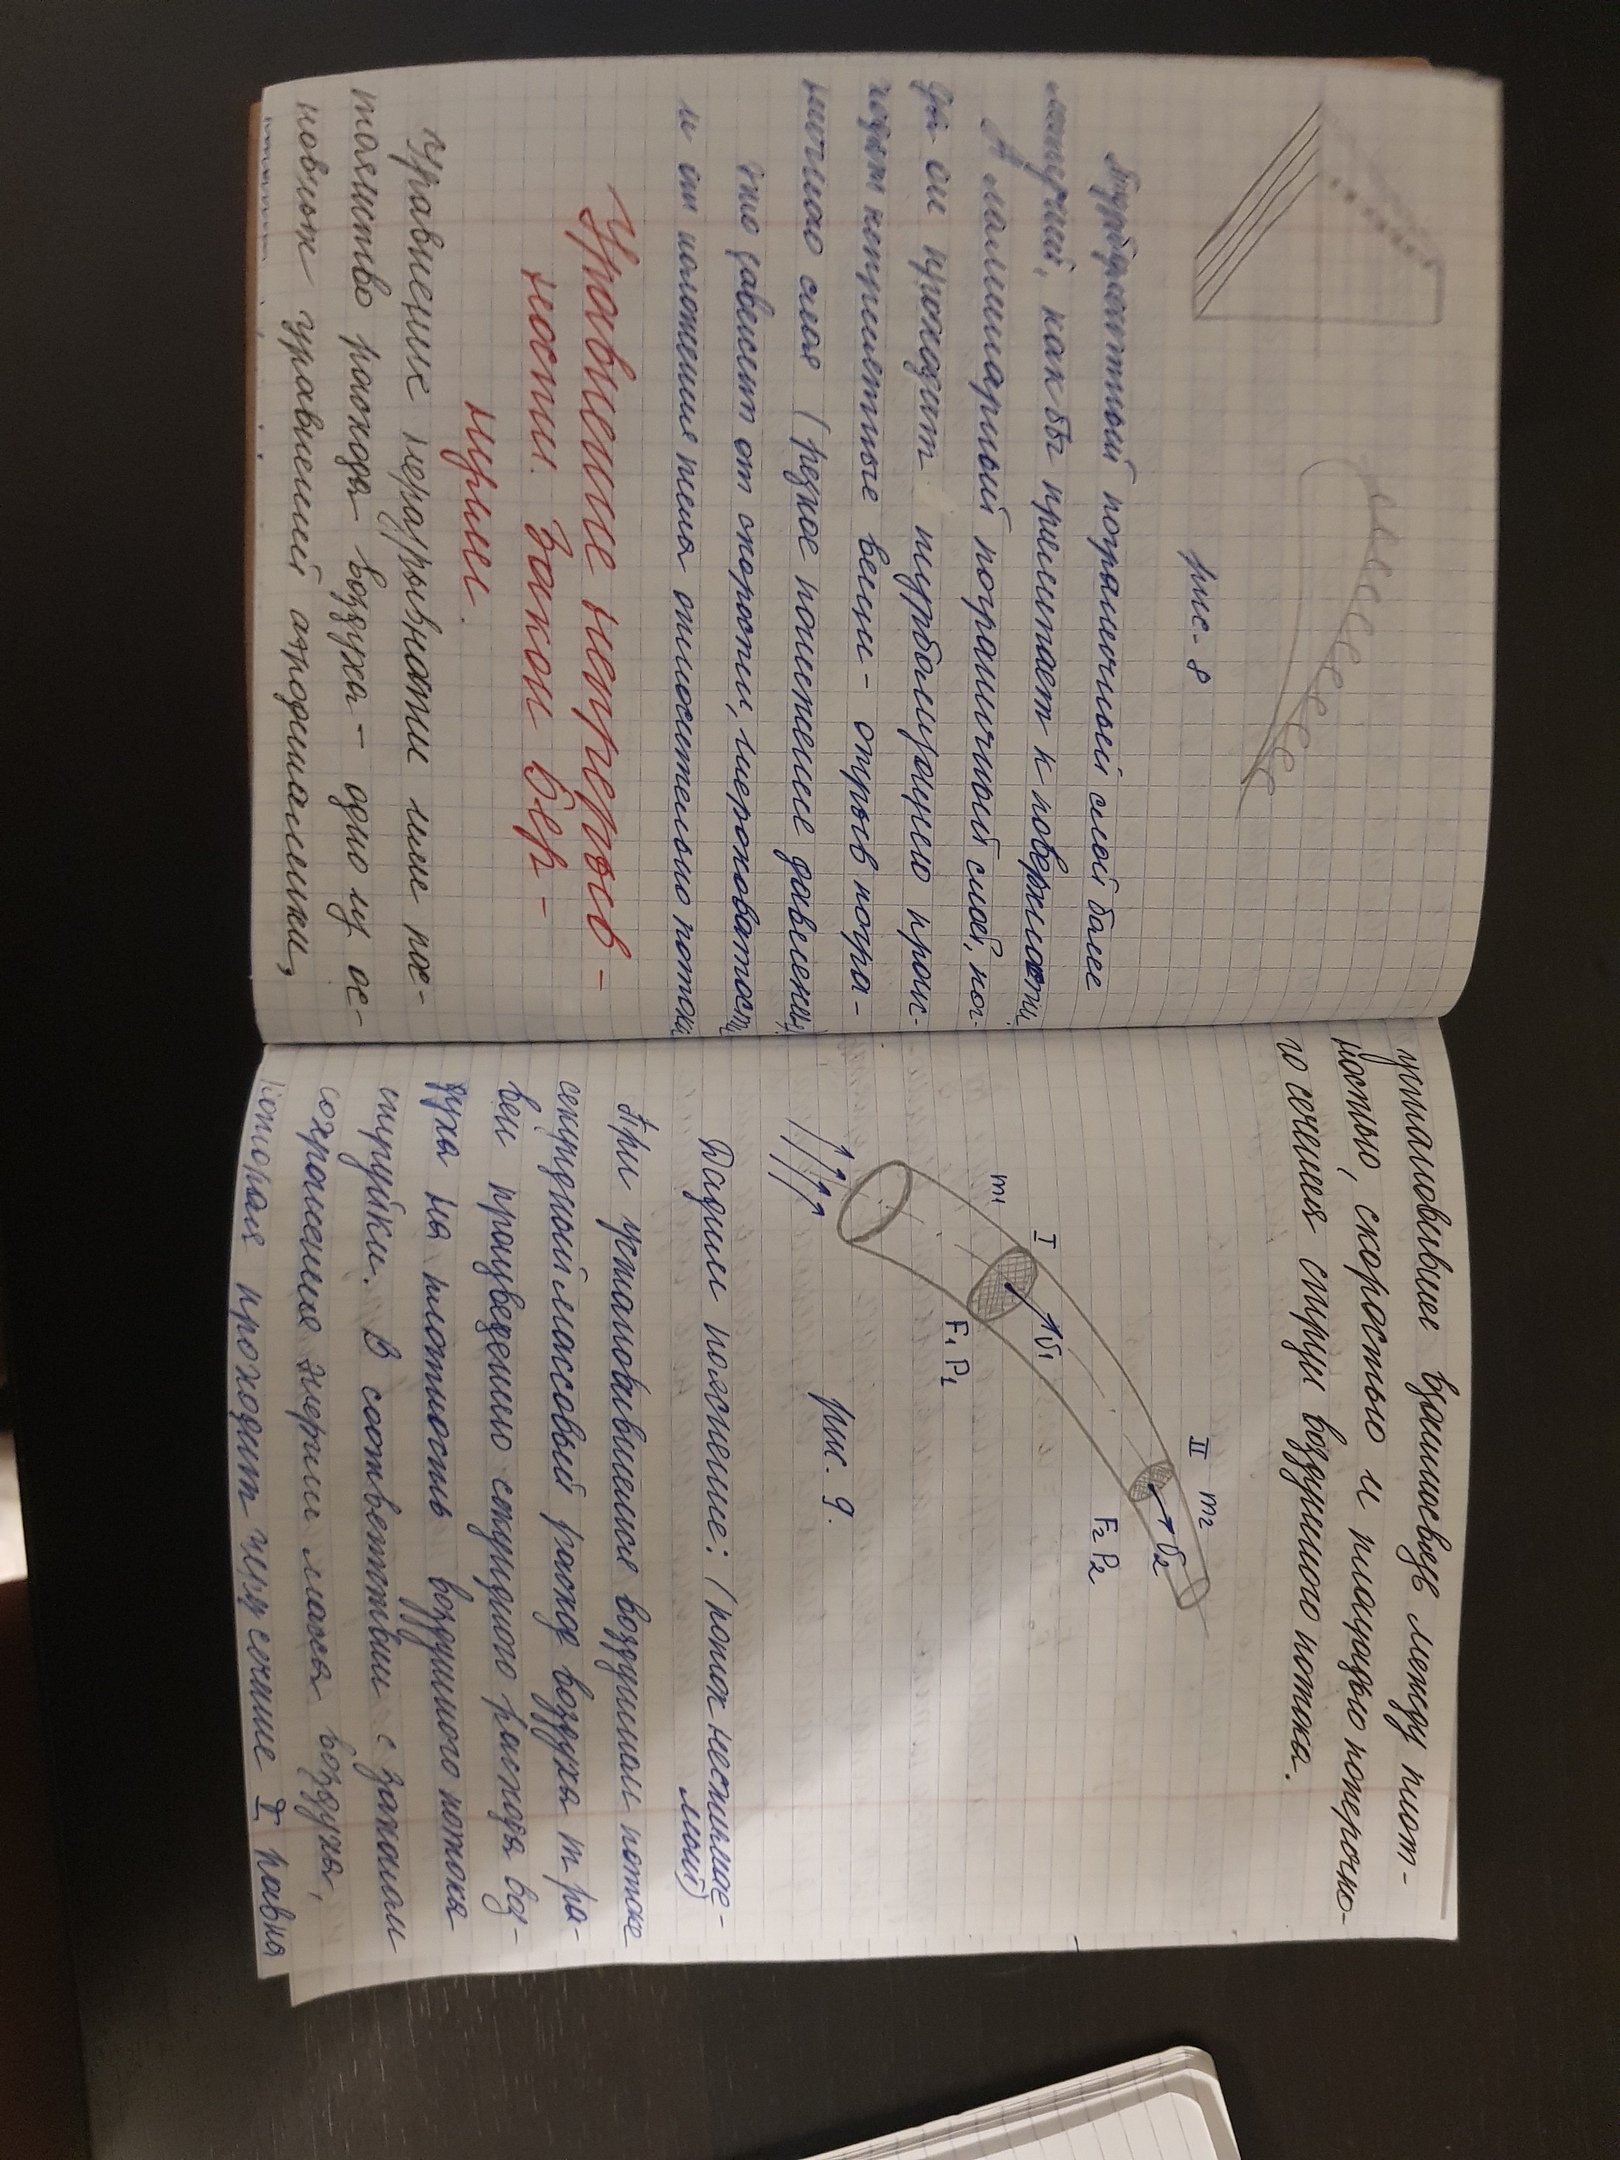 рис. 8
Турбулентный пограничный слой более
летучий, как бы прилипает к поверхности.
А ламинарный пограничный слой, ког-
да он проходит турбализацию проис-
ходят неприятные вещи - отрыв погра-
ничного слоя (резкое понижение давления).
Это зависит от скорости, шероховатости
и от положения тела относительно потока
Уравнение непрерыв-
ности. Закон Бер-
нулли.
Уравнение неразрывности или пос-
тоянство расхода воздуха - одно из ос-
новных уравнений аэродинамики,
установившее взаимосвязь между плот-
ностью, скоростью и площадью поперечно-
го сечения струи воздушного потока.
II m2
υ2
F2 P2
I υ1
m1
F1 P1
рис. 9.
Дадим пояснение: (поток несжимае-
мый)
При установившемся воздушном потоке
секундный массовый расход воздуха m ра-
вен произведению секундного расхода воз-
духа на плотность воздушного потока
струйки. В соответствии с законом
сохранения энергии масса воздуха,
которая проходит через сечение I равна